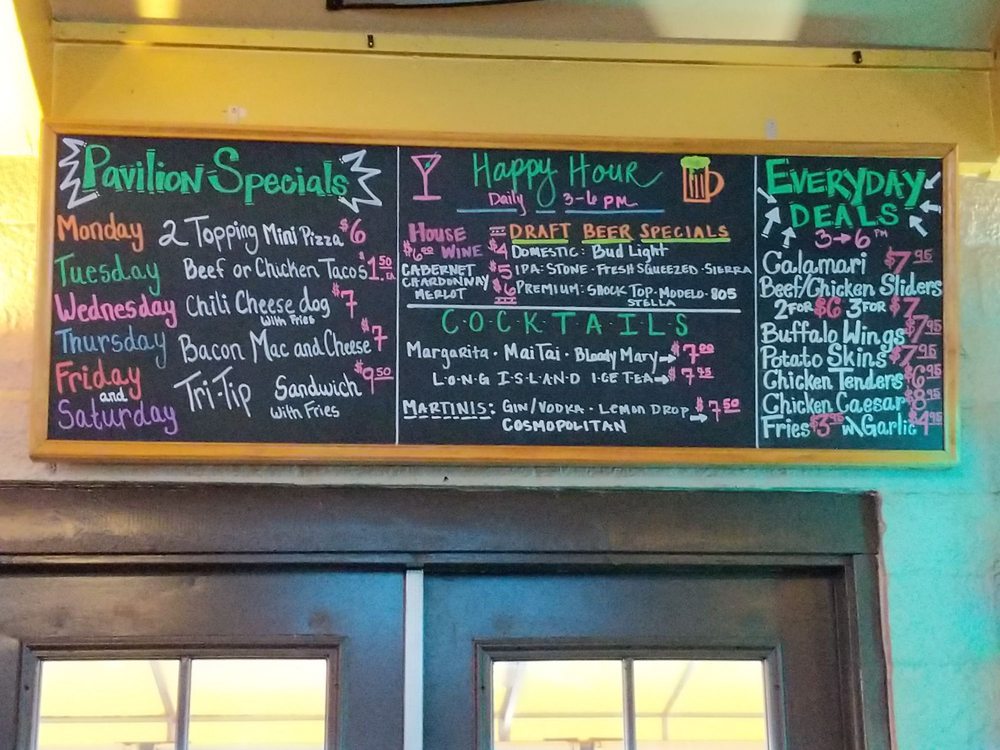 Pavilion Specials
Monday 2 Topping Mini Pizza $6
Tuesday Beef or Chicken Tacos $1.50 EA.
Wednesday Chili Cheese dog $7
with Fries
Thursday Bacon Mac and Cheese $7
Friday and Saturday Tri-Tip Sandwich $9.50
with Fries
Happy Hour
Daily 3-6 PM
House Wine $6.00
Cabernet
Chardonnay
Merlot
Draft Beer Specials
$4 Domestic: Bud Light
$5 IPA: Stone · Fresh Squeezed · Sierra
$6 Premium: Shock Top · Modelo · 805
Stella
COCKTAILS
Margarita · Mai Tai · Bloody Mary → $7.00
LONG ISLAND ICE TEA → $7.75
Martinis: Gin/Vodka · Lemon Drop → $7.50
Cosmopolitan
Everyday
Deals
3→6 PM
Calamari $7.95
Beef/Chicken Sliders
2 for $6 3 for $7
Buffalo Wings $7.95
Potato Skins $7.95
Chicken Tenders $6.95
Chicken Caesar $8.95
Fries $3.95 w/Garlic $4.95